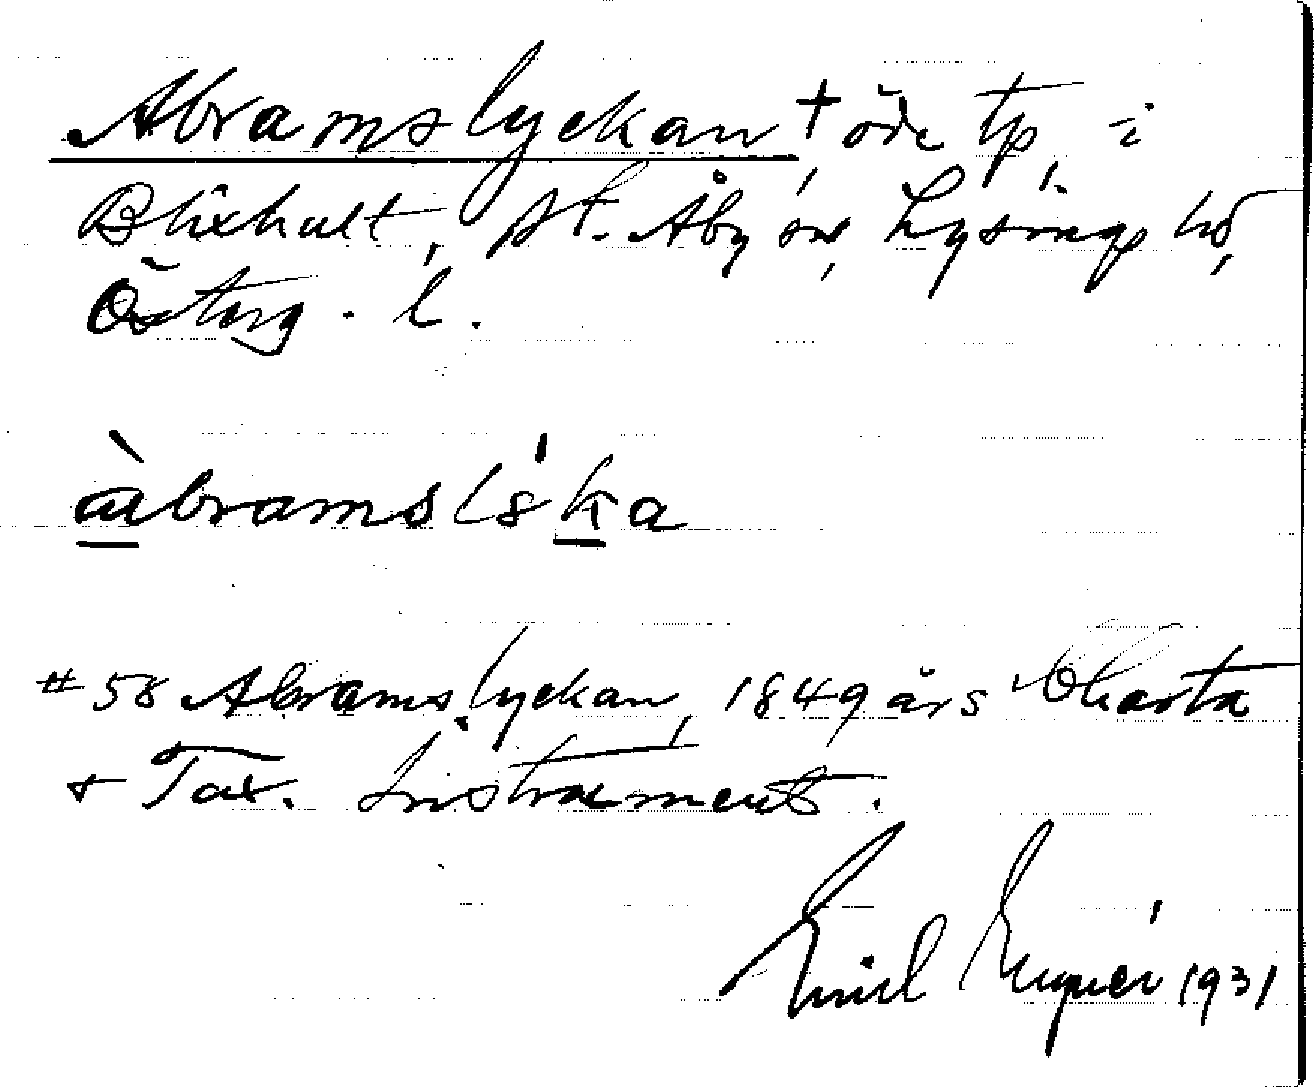 Abramslyckan † öde tp, i
Blixhult, St. Åby sn, Lysings hd,
Österg. l.
àbramsls'ka
# 58 Abramslyckan, 1849 års Charta
+ Tax. Instrument.
Emil 1931